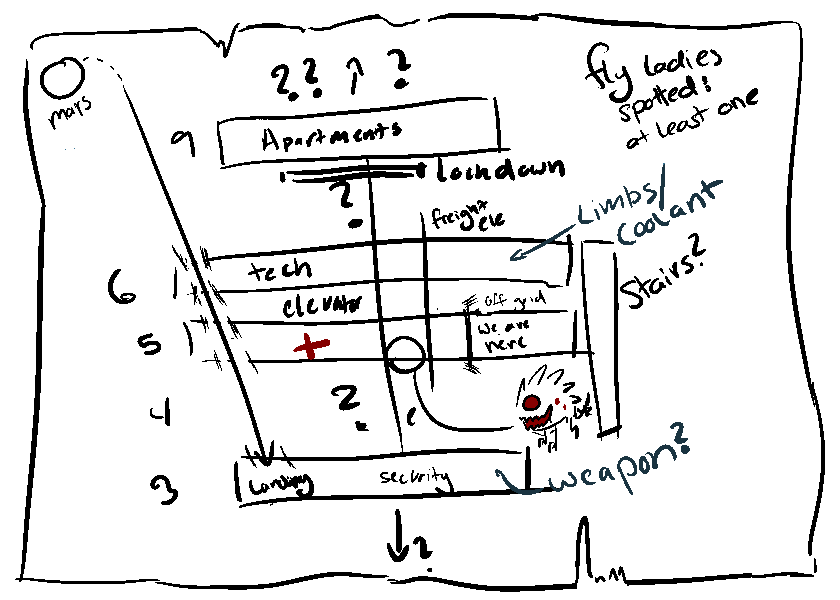 mars
?? ↑ ?
fly ladies
spotted:
at least one
9
Apartments
lockdown
?
freight
ele
Limbs/
Coolant
6
tech
elevator
off grid
Stairs?
5
we are
here
4
?
3
Landing
security
weapon?
?